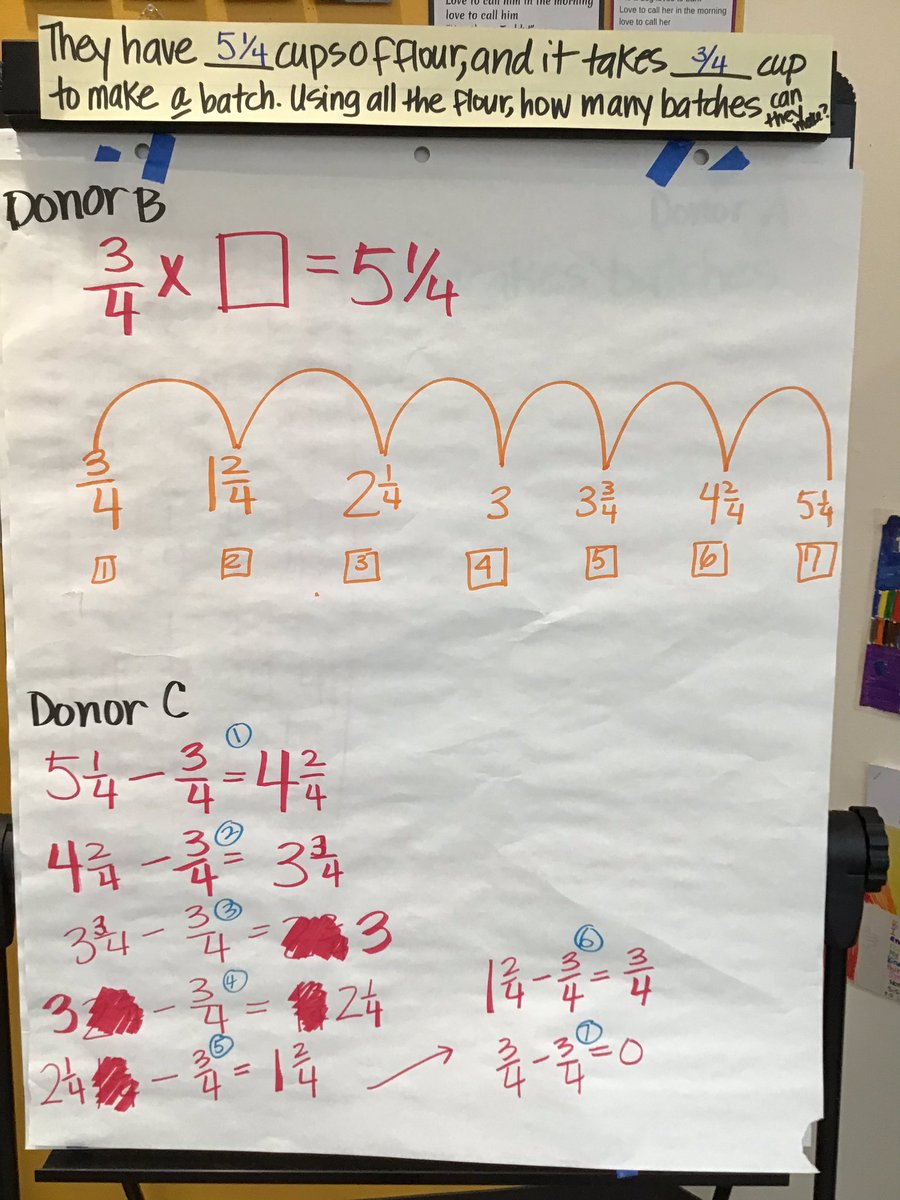 love to call him
Love to call her in the morning
love to call her
They have 5 1/4 cups of flour, and it takes 3/4 cup
to make a batch. Using all the flour, how many batches can they make?
Donor B
3/4 x □ = 5 1/4
3/4 1 2/4 2 1/4 3 3 3/4 4 2/4 5 1/4
1 2 3 4 5 6 7
Donor C
5 1/4 - 3/4 = 4 2/4 ①
4 2/4 - 3/4 = 3 3/4 ②
3 3/4 - 3/4 = 3 ③
3 - 3/4 = 2 1/4 ④
2 1/4 - 3/4 = 1 2/4 ⑤ →
1 2/4 - 3/4 = 3/4 ⑥
3/4 - 3/4 = 0 ⑦